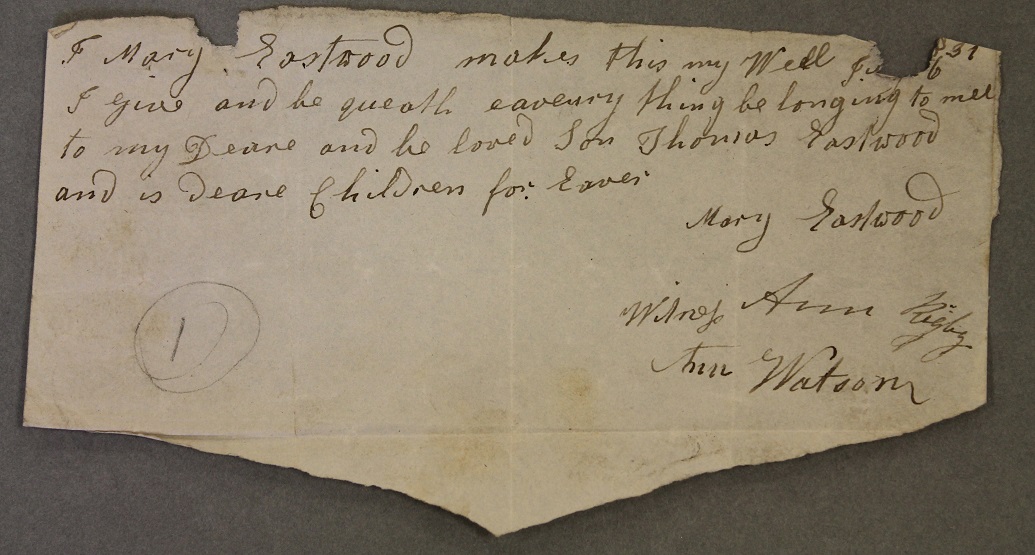 I Mary Eastwood makes this my Well
I Give and be queath eaveury thing be longing to mee
to my Deare and be loved Son Thomas Eastwood
and is Deare Children for Eaver
Mary Eastwood
Witness Ann Rigby
Ann Watson
1